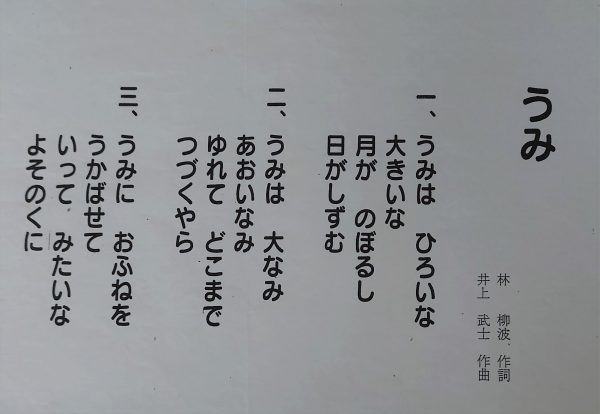 うみ
林 柳波 作詞
井上 武士 作曲
一、うみは ひろいな
大きいな
月が のぼるし
日がしずむ
二、うみは 大なみ
あおいなみ
ゆれて どこまで
つづくやら
三、うみに おふねを
うかばせて
いって みたいな
よそのくに